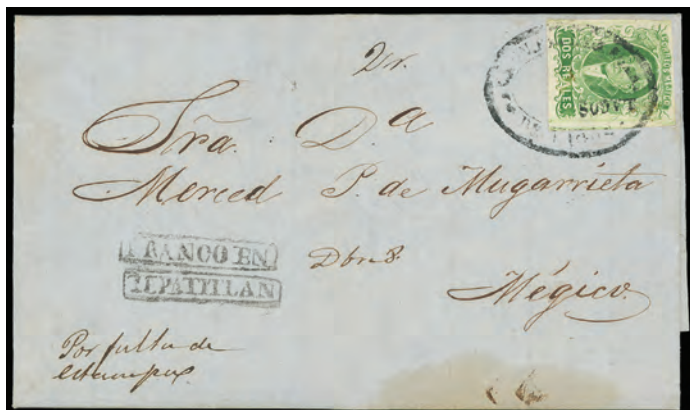 2 r.
DOS REALES
LAGOS
Sra. D.a
Merced P. de Mugarrieta
FRANCO EN
TEPATITLAN
Dbre 8.
Mégico.
Por falta de
estampas